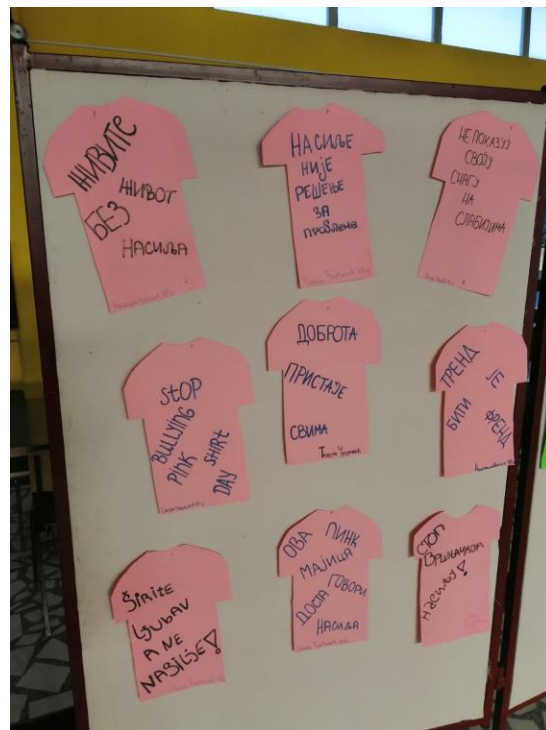 ЖИВИТЕ
ЖИВОТ
БЕЗ
НАСИЉА
НАСИЉЕ
НИЈЕ
РЕШЕЊЕ
ЗА
ПРОБЛЕМЕ
НЕ ПОКАЗУЈ
СВОЈУ
СНАГУ
НА
СЛАБИЈИМА
STOP
BULLYING
PINK
SHIRT
DAY
ДОБРОТА
ПРИСТАЈЕ
СВИМА
ТРЕНД
ЈЕ
БИТИ
ФРЕНД
ŠIRITE
LJUBAV
A NE
NASILJE!
ОВА ПИНК
МАЈИЦА
ГОВОРИ
ДОСТА
НАСИЉА
СТОП
ВРШЊАЧКОМ
НАСИЉУ!